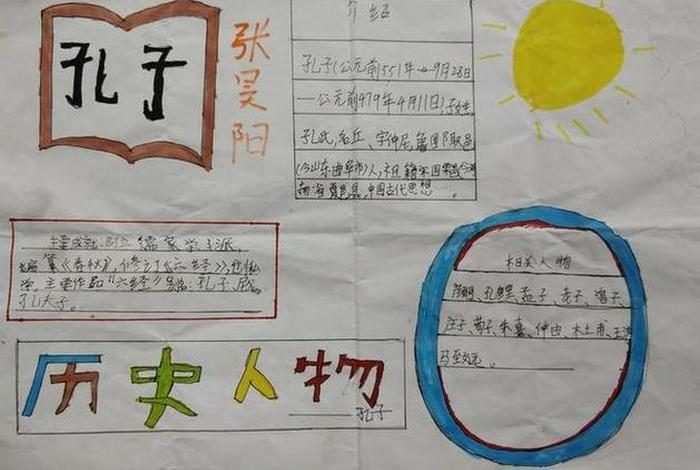 孔子
张昊阳
介绍
孔子(公元前551年 9月28日
—公元前479年4月11日),子姓,
孔氏,名丘、字仲尼,鲁国陬邑
(今山东曲阜市)人,祖籍宋国栗邑
夏邑县,中国古代思想……
主要成就: 儒家学派,
编纂《春秋》,修订《六经》,
主要作品"六经" 孔子、尼
孔夫子。
历史人物
孔子
相关人物
孔鲤、孟子、老子、曾子、
庄子、荀子、朱熹、仲由、